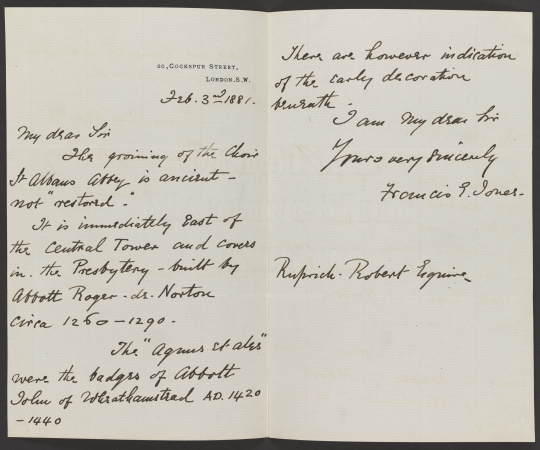 20, COCKSPUR STREET,
LONDON. S.W.
Feb. 3rd 1881.
My dear Sir
The groining of the Choir
St Albans Abbey is ancient -
not "restored."
It is immediately East of
the Central Tower and covers
in the Presbytery - built by
Abbott Roger de Norton
circa 1260 - 1290.
The "Agnus et ales"
were the badges of Abbott
John of Whethamstead AD. 1420
- 1440
There are however indication
of the early decoration
beneath.
I am my dear Sir
Yours very sincerely
Francis E. Jones.
Ruprich-Robert Esquire